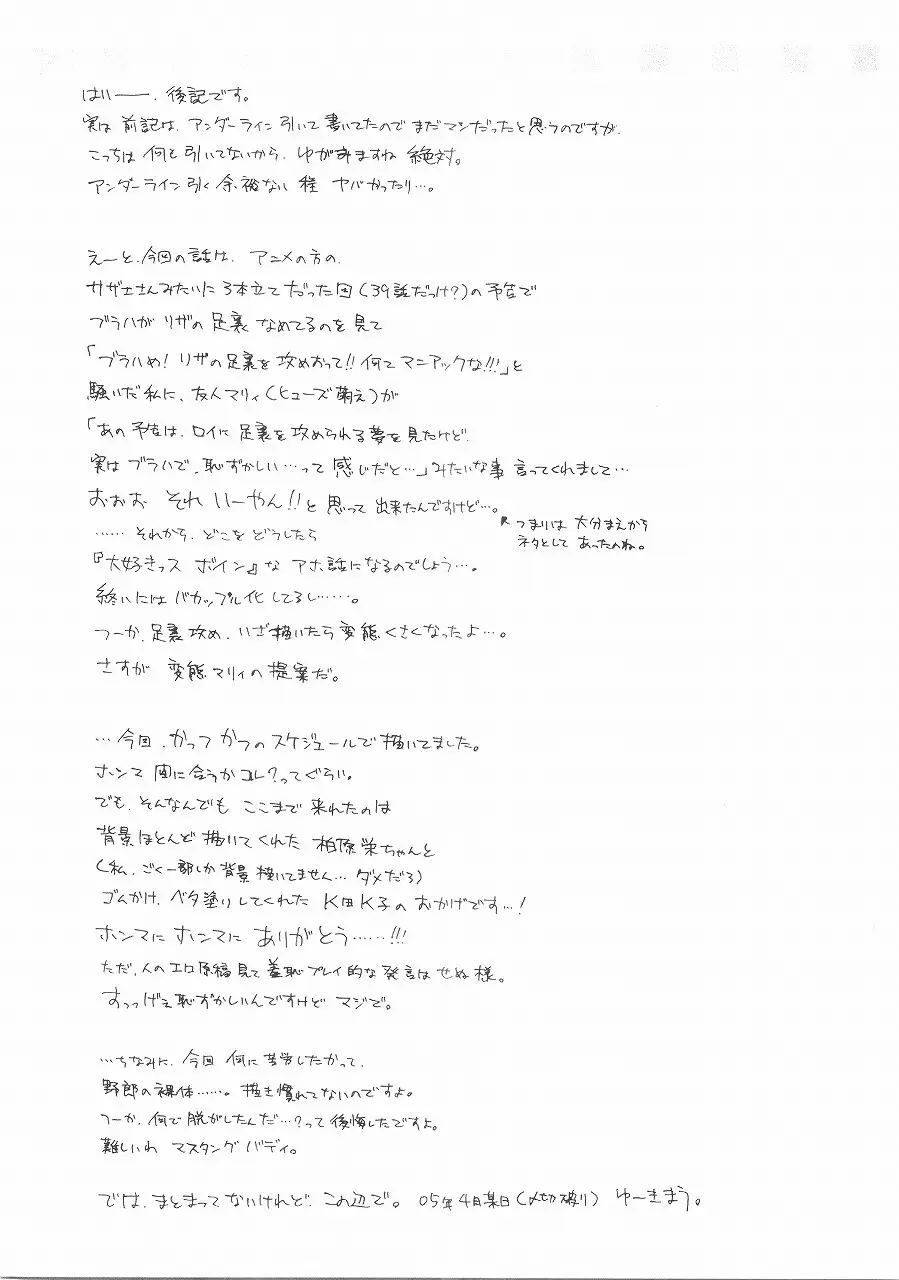 はい――、後記です。
実は前記は、アンダーライン引いて書いてたのでまだマシだったと思うのですが、
こっちは何も引いてないから、ゆがみますね絶対。
アンダーライン引く余裕ない程 ヤバかったり…。
えーと、今回の話は、アニメの方の、
サザエさんみたいに3本立てだった回(39話だっけ?)の予告で
ブラハがリザの足裏なめてるのを見て
「ブラハめ!リザの足裏を攻めおって!!何てマニアックな!!!」と
騒いだ私に、友人マリィ(ヒューズ萌え)が
「あの予告は、ロイに足裏を攻められる夢を見たけど、
実はブラハで、恥ずかしい…って感じだと…」みたいな事言ってくれまして…
おおお それいーやん!!と思って出来たんですけど…。
つまりは大分まえから
ネタとしてあったのね。
……それから、どこをどうしたら
『大好きっス ボイン』なアホ話になるのでしょう…。
終いにはバカップル化してるし……。
つーか、足裏攻め、いざ描いたら変態くさくなったよ…。
さすが変態マリィの提案だ。
…今回、かっつかつのスケジュールで描いてました。
ホンマ間に合うかコレ?ってぐらい。
でも、そんなんでもここまで来れたのは
背景ほとんど描いてくれた柏原栄ちゃんと
(私、ごく一部しか背景描いてません…ダメだろ)
ゴムかけ、ベタ塗りしてくれたK田K子のおかげです…!
ホンマにホンマにありがとう……!!!
ただ、人のエロ原稿見て羞恥プレイ的な発言はせぬ様。
すっっげえ恥ずかしいんですけどマジで。
…ちなみに、今回何に苦労したかって、
野郎の裸体……。描き慣れてないのですよ。
つーか、何で脱がしたんだ…?って後悔したですよ。
難しいわ マスタングバディ。
では、まとまってないけれど、この辺で。 05年4月某日(〆切破り) ゆーきまう。